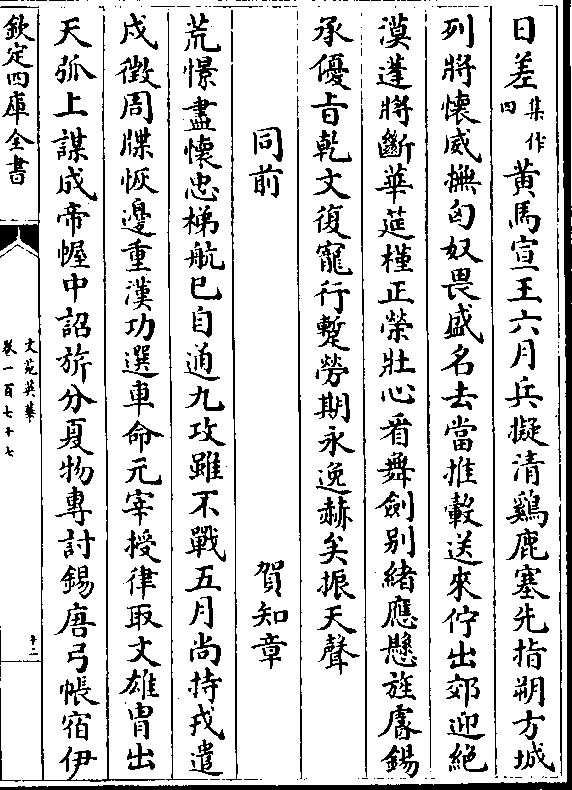 日差集作四黄馬宣王六月兵擬清鷄鹿塞先指朔方城
列將懷威撫匈奴畏盛名去當推轂送來佇出郊迎絶
漠蓬將斷華莚槿正榮壯心看舞劍别緒應懸旌慮錫
承優㫖乾文復寵行蹔勞期永逸赫矣振天聲
同前 賀知章
荒憬盡懷忠梯航已自通九攻雖不戰五月尚持戎遣
戍徵周牒恢邊重漢功選車命元宰授律取文雄胄出
天弧上謀成帝幄中詔旂分夏物專討錫唐弓帳宿伊
欽定四庫全書
文苑英華
卷一百七十七
十二